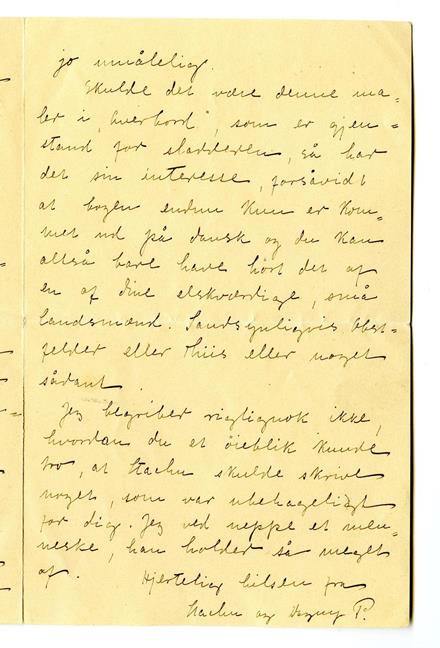 jo umålelig.
Skulde det være denne ma-
ler i „Overbord", som er gjen-
stand for sladderen, så har
det sin interesse, forsåvidt
at bogen endnu kun er kom-
met ud på dansk og du kan
altså bare have hørt det af
en af dine elskværdige, små
landsmænd. Sandsynligvis Obst-
felder eller Thiis eller noget
sådant.
Jeg begriber rigtignok ikke,
hvordan du et öieblik kunde
tro, at Stachu skulde skrive
noget, som var ubehageligt
for dig. Jeg ved neppe et men-
neske, han holder så meget
af. Hjertelig hilsen fra
Stachu og Dagny P.